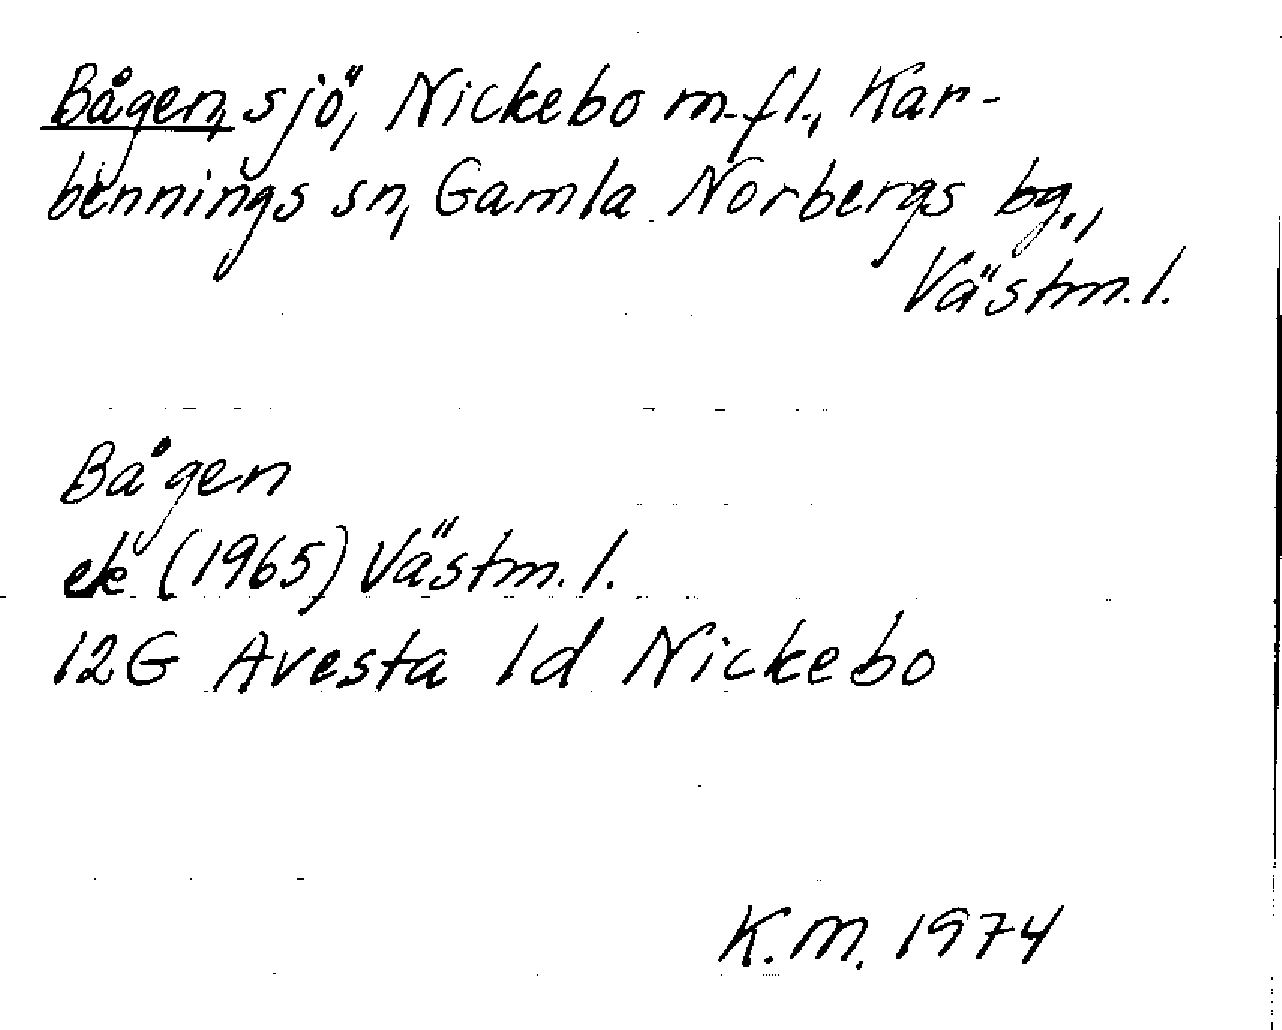 Bågen, sjö, Nickebo m.fl., Kar-
bennings sn, Gamla Norbergs bg.,
Västm.l.
Bågen
ek (1965) Västm.l.
12G Avesta 1d Nickebo
K.M. 1974